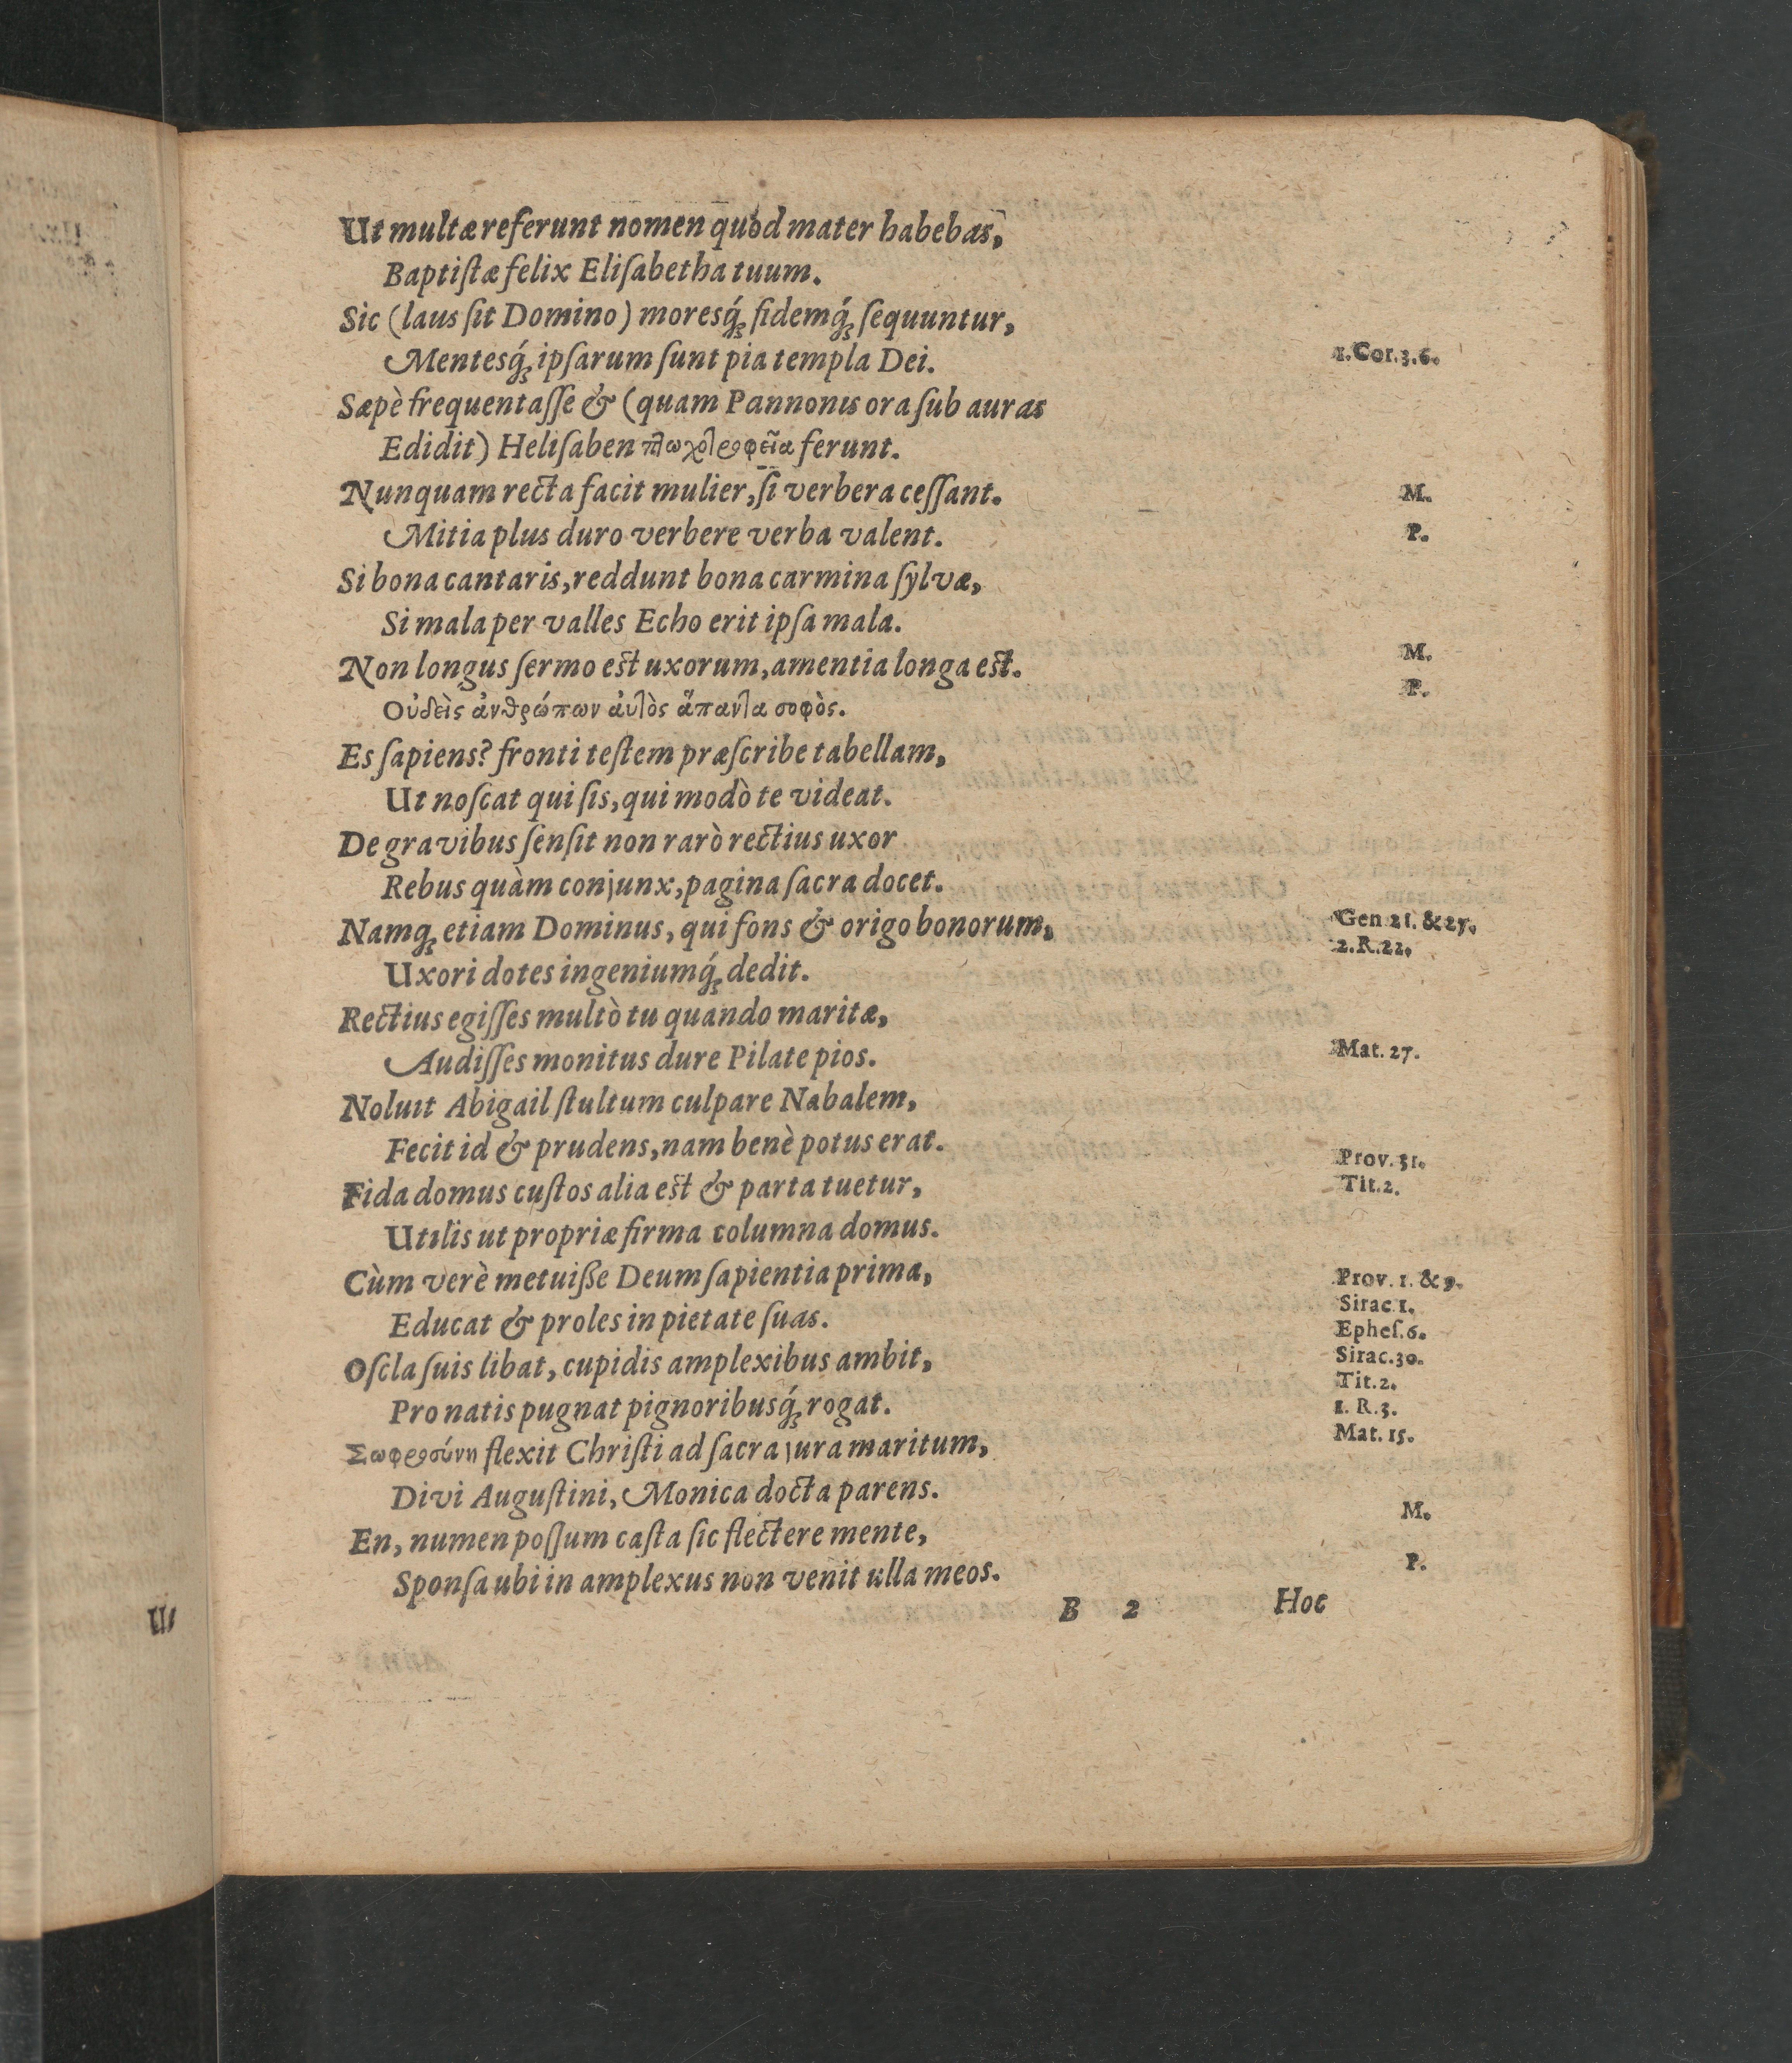 Ut multæ referunt nomen quòd mater habebas,
Baptiſtæ felix Eliſabetha tuum.
Sic (laus ſit Domino) moresq́; fidemq́; ſequuntur,
Mentesq́; ipſarum ſunt pia templa Dei.
1. Cor. 3. 6.
Sæpè frequentaſſe & (quam Pannonis ora ſub auras
Edidit) Heliſaben πτωχοτροφεῖα ferunt.
Nunquam recta facit mulier, ſi verbera ceſſant.
M.
Mitia plus duro verbere verba valent.
P.
Si bona cantaris, reddunt bona carmina ſylvæ,
Si mala per valles Echo erit ipſa mala.
Non longus ſermo est uxorum, amentia longa est.
M.
Οὐδεὶς ἀνθρώπων ἀυτὸς ἅπαντα σοφὸς.
P.
Es ſapiens? fronti teſtem præſcribe tabellam,
Ut noſcat qui ſis, qui modò te videat.
De gravibus ſenſit non rarò rectius uxor
Rebus quàm conjunx, pagina ſacra docet.
Namq; etiam Dominus, qui fons & origo bonorum,
Gen 21. & 27.
2. R. 22.
Uxori dotes ingeniumq́; dedit.
Rectius egiſſes multò tu quando maritæ,
Audiſſes monitus dure Pilate pios.
Mat. 27.
Noluit Abigail ſtultum culpare Nabalem,
Fecit id & prudens, nam benè potus erat.
Prov. 31.
Fida domus cuſtos alia est & parta tuetur,
Tit. 2.
Utilis ut propriæ firma columna domus.
Cùm verè metuiße Deum ſapientia prima,
Prov. 1. & 9.
Sirac. 1.
Educat & proles in pietate ſuas.
Epheſ. 6.
Oſcla ſuis libat, cupidis amplexibus ambit,
Sirac. 30.
Tit. 2.
Pro natis pugnat pignoribusq́; rogat.
1. R. 3.
Mat. 15.
Σωφροσύνη flexit Chriſti ad ſacra jura maritum,
Divi Auguſtini, Monica docta parens.
En, numen poſſum caſta ſic flectere mente,
M.
Sponſa ubi in amplexus non venit ulla meos.
P.
B 2 Hoc
Ut